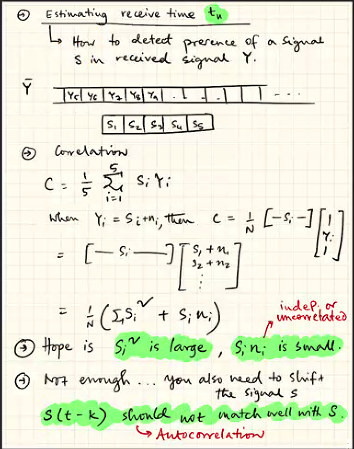 → Estimating receive time tn
↳ How to detect presence of a signal
S in received signal Y.
Ȳ
Y5 Y6 Y7 Y8 Y9 . . . . - - -
S1 S2 S3 S4 S5
→ Correlation
C = 1/5 5∑i=1 Si Yi
When Yi = Si+ni, then C = 1/N [-Si-] [| Yi |]
= [— Si ——] [S1 + n1
S2 + n2
⋮]
= 1/N (∑Si² + Si ni)
indep. or
uncorrelated
→ Hope is Si² is large, Si ni is small.
→ Not enough ... you also need to shift
the signal S
S(t-k) should not match well with S.
↳ Autocorrelation